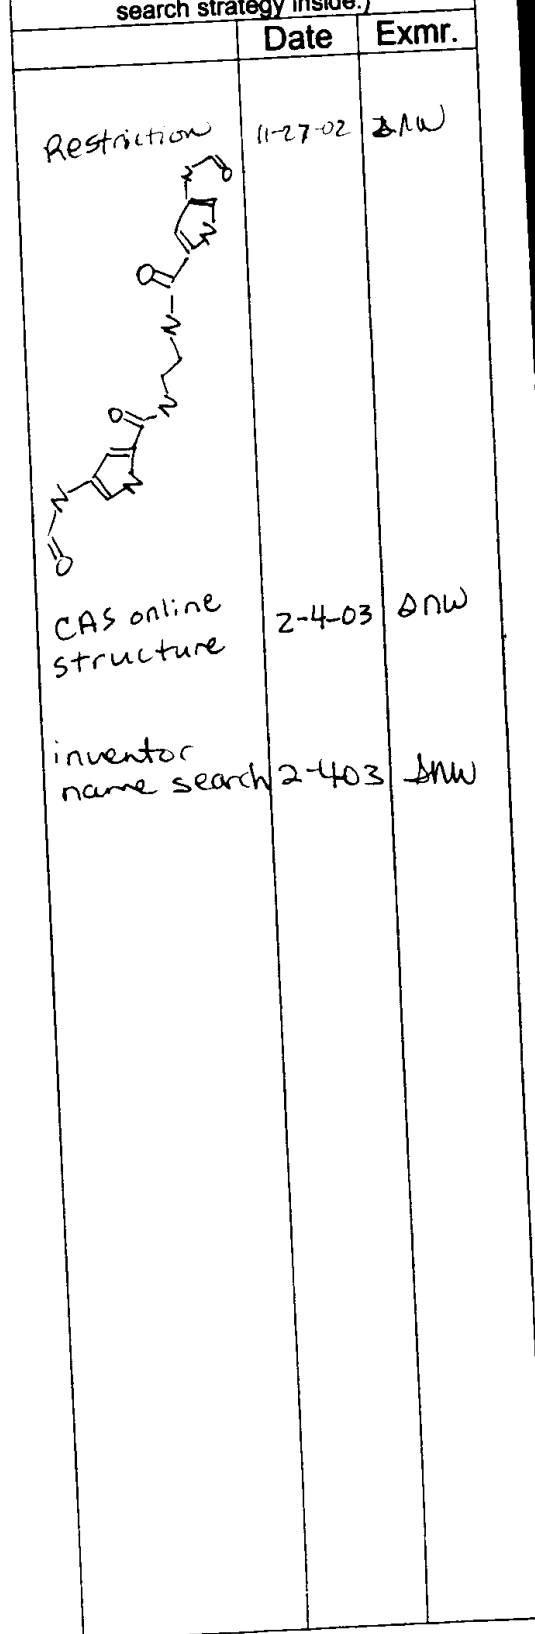 search strategy inside.)
Date Exmr.
Restriction 11-27-02 DNW
N O
N
O
N
N
O
N
N
O
CAS online
structure 2-4-03 DNW
inventor
name search 2-403 DNW